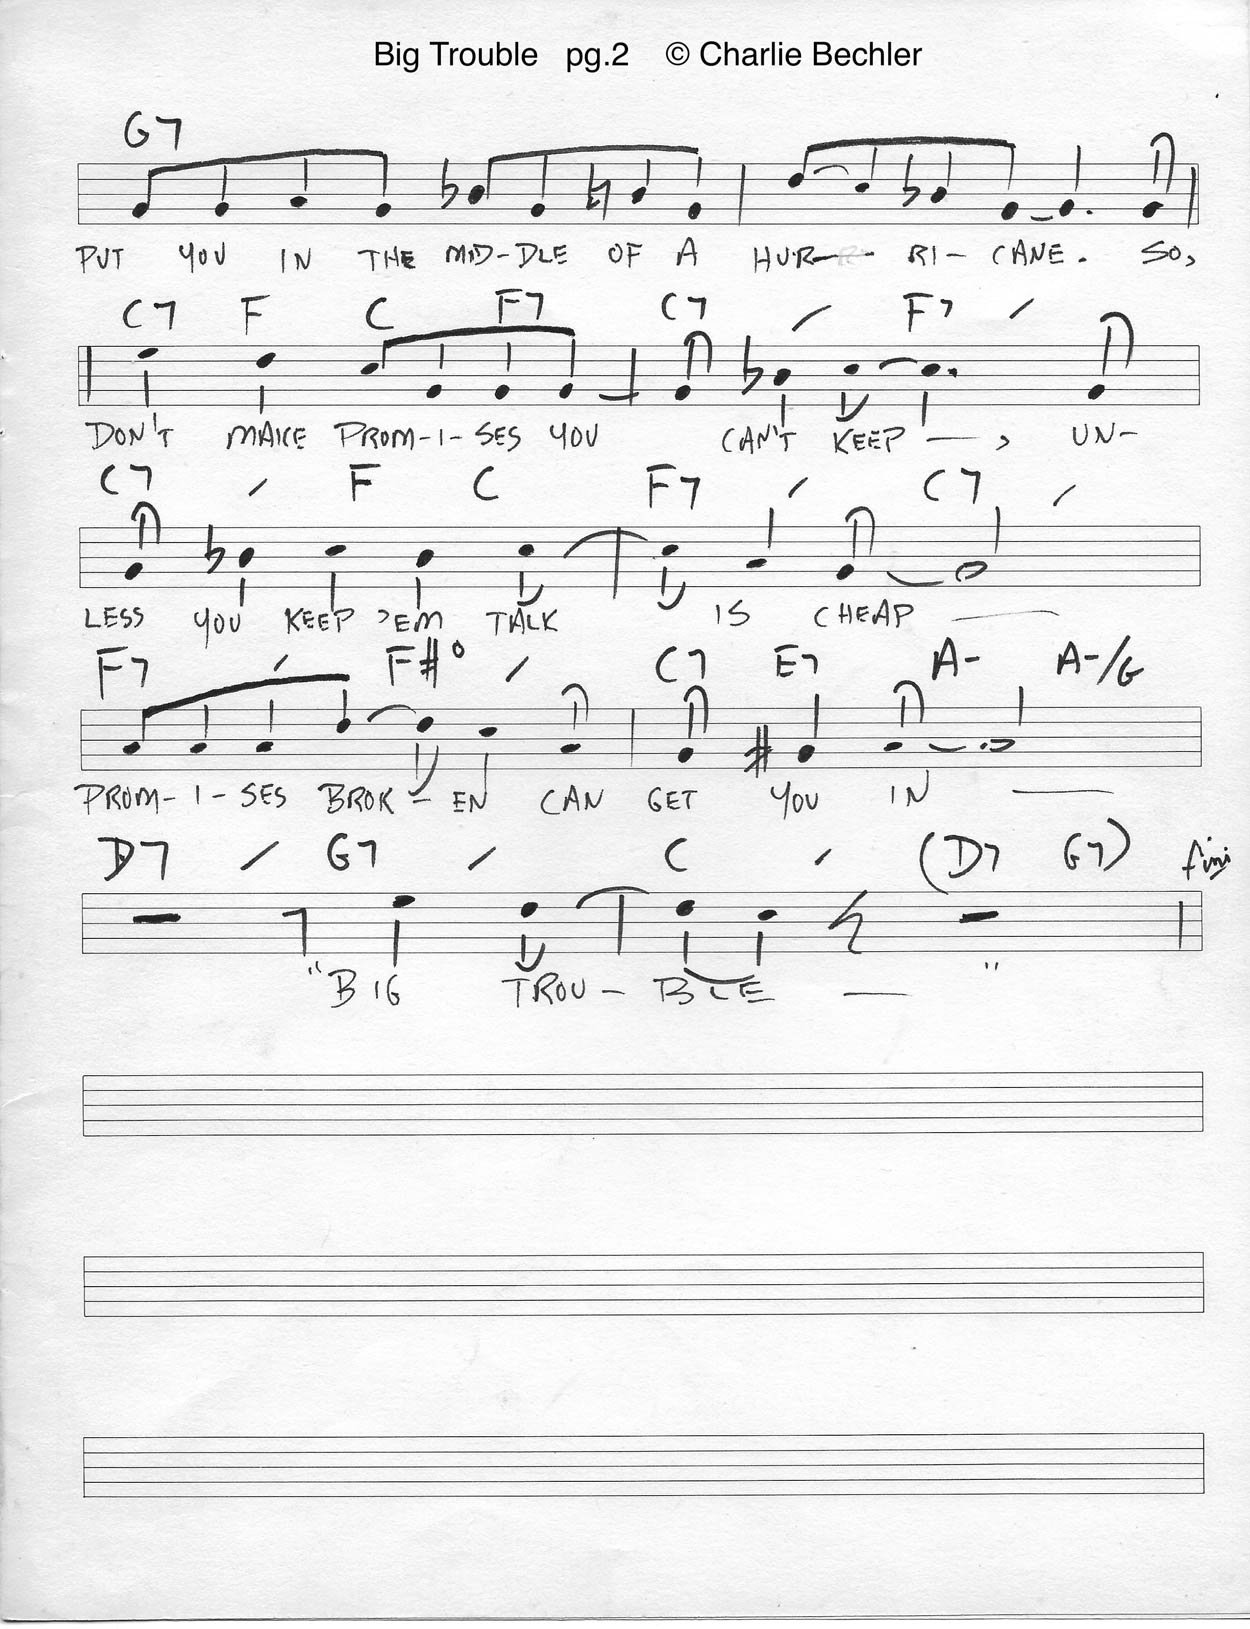 Big Trouble pg.2 © Charlie Bechler
G7
PUT YOU IN THE MID-DLE OF A HUR- RI- CANE. SO,
C7 F C F7 C7 / F7 /
DON'T MAKE PROM-I-SES YOU CAN'T KEEP —, UN-
C7 / F C F7 / C7 /
LESS YOU KEEP 'EM TALK IS CHEAP —
F7 / F#° / C7 E7 A- A-/G
PROM-I-SES BROK-EN CAN GET YOU IN —
D7 / G7 / C / (D7 G7) fini
"BIG TROU-BLE — "